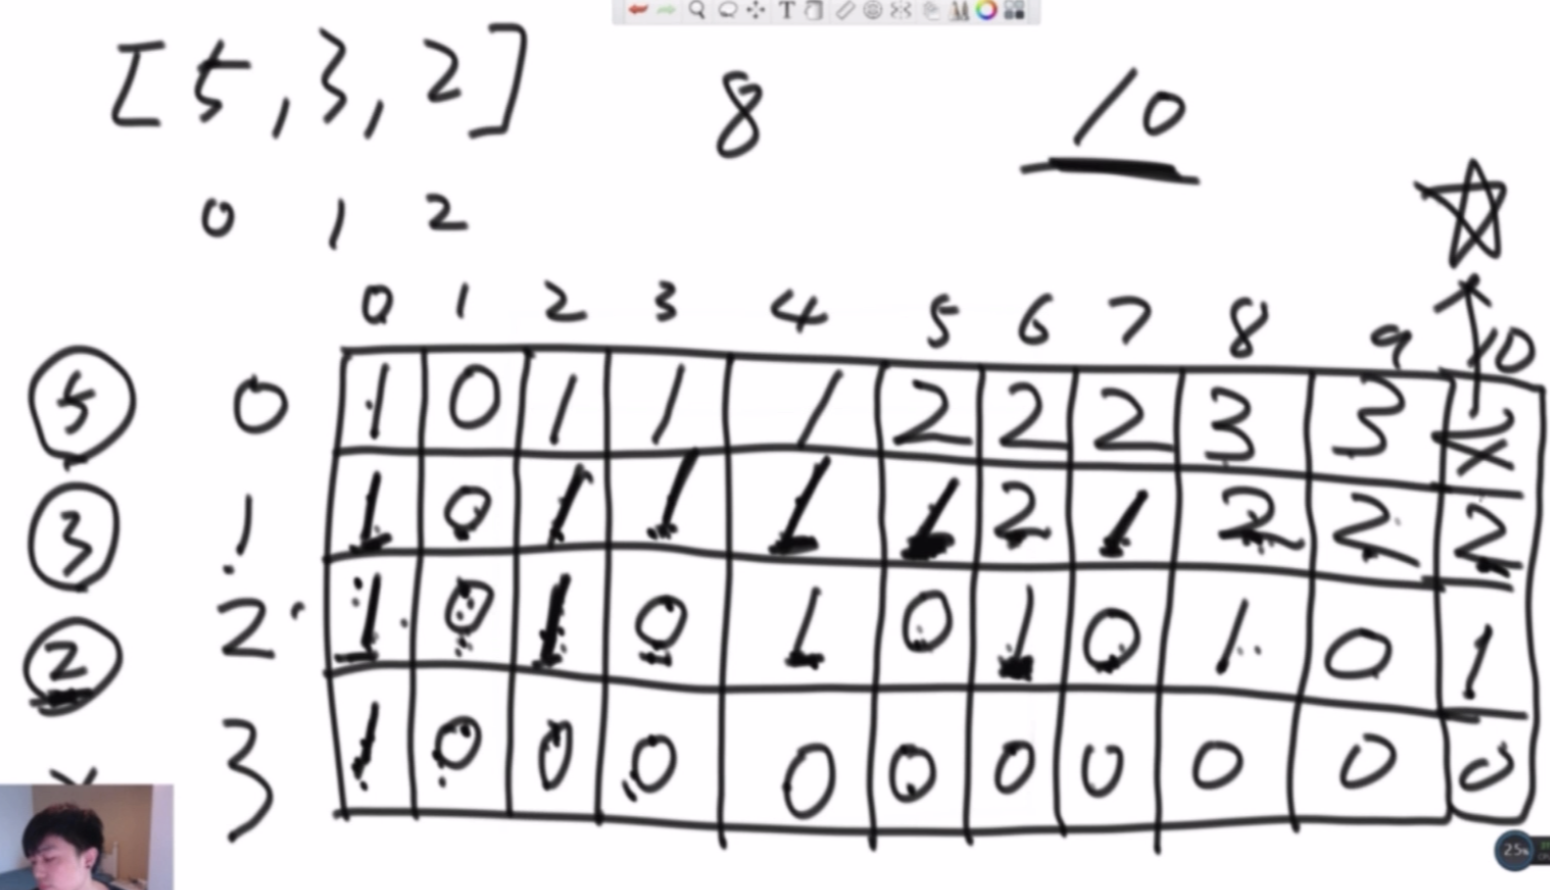 [5, 3, 2] 8 10
0 1 2
0 1 2 3 4 5 6 7 8 9 10
5 0 1 0 1 1 1 2 2 2 3 3
3 1 1 0 1 1 1 1 2 1 2 2 2
2 2 1 0 1 0 1 0 1 0 1 0 1
3 1 0 0 0 0 0 0 0 0 0 0
25%